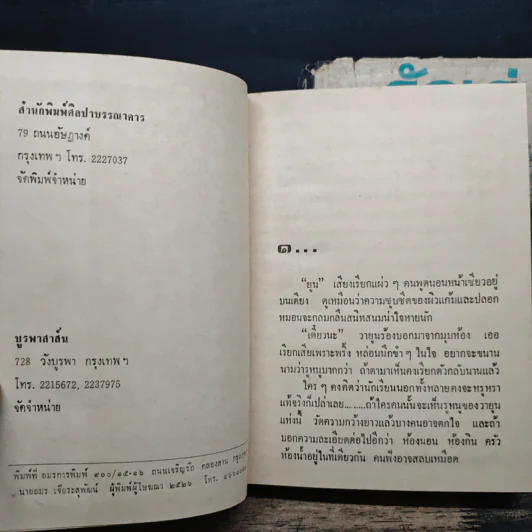 สำนักพิมพ์ศิลปาบรรณาคาร
79 ถนนอัษฎางค์
กรุงเทพ ฯ โทร. 2227037
จัดพิมพ์จำหน่าย
บูรพาสาส์น
728 วังบูรพา กรุงเทพ ฯ
โทร. 2215672, 2237975
จัดจำหน่าย
พิมพ์ที่ อมรการพิมพ์ ๙๐๐/๑๕-๑๖ ถนนเจริญรัถ คลองสาน
นายอมร เจียระสุพัฒน์ ผู้พิมพ์ผู้โฆษณา ๒๕๒๖ โทร.
๑...
“ยุน” เสียงเรียกแผ่ว ๆ คนพูดนอนหน้าเซียวอยู่
บนเตียง ดูเหมือนว่าความซูบซีดของผิวแก้มและปลอก
หมอนจะกลมกลืนสนิทสนมน่าใจหายนัก
“เดี๋ยวนะ” วายุนร้องบอกมาจากมุมห้อง เออ
เรียกเสียเพราะพริ้ง หล่อนนึกขำ ๆ ในใจ อยากจะขนาน
นามว่ารูหนูมากกว่า ถ้าตามาเห็นคงเรียกดังกลับนานแล้ว
ใคร ๆ คงคิดว่านักเรียนนอกทั้งหลายคงจะหรูหรา
แท้จริงก็เปล่าเลย........ถ้าใครคนนั้นจะเห็นรูหนูของวายุน
แห่งนี้ วัดความกว้างยาวแล้วบางคนอาจตกใจ และถ้า
บอกความละเอียดต่อไปอีกว่า ห้องนอน ห้องกิน ครัว
ห้องน้ำอยู่ในที่เดียวกัน คนฟังอาจสลบเหมือด